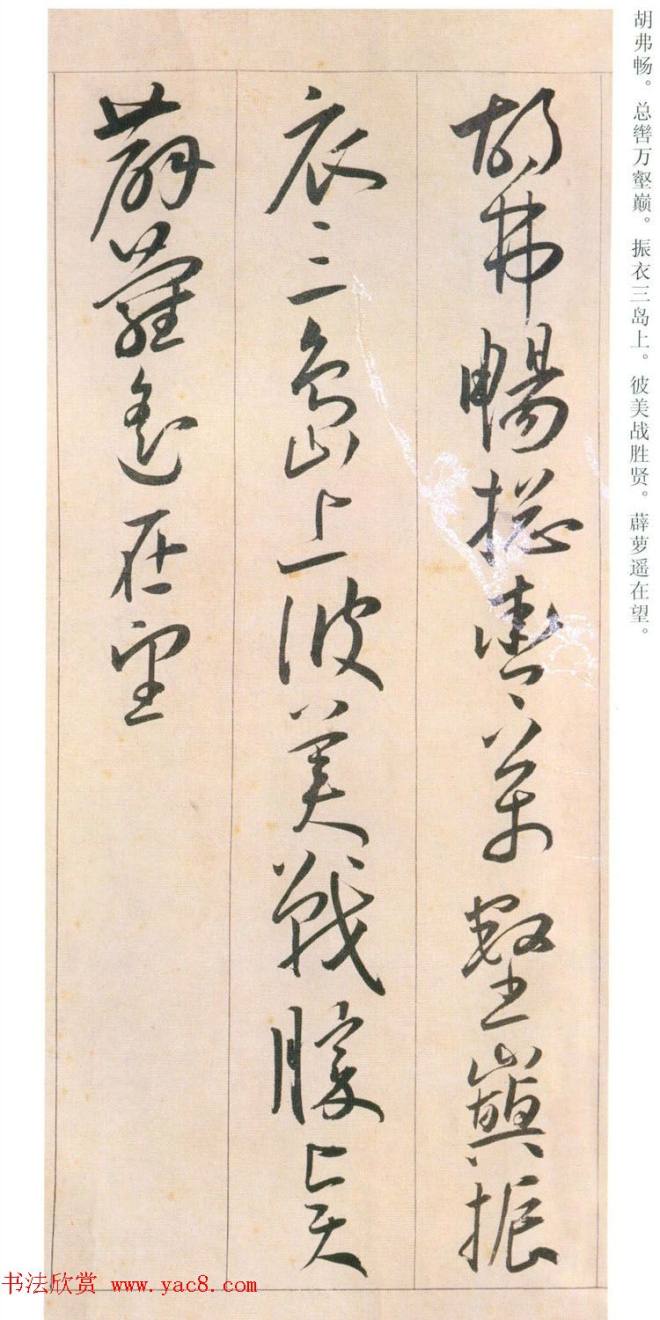 胡弗畅。总辔万壑巅。振衣三岛上。彼美战胜贤。薜萝遥在望。
胡弗暢揔轡万壑巔振
衣三島上彼美戰勝賢
薜蘿遙在望
书法欣赏 www.yac8.com